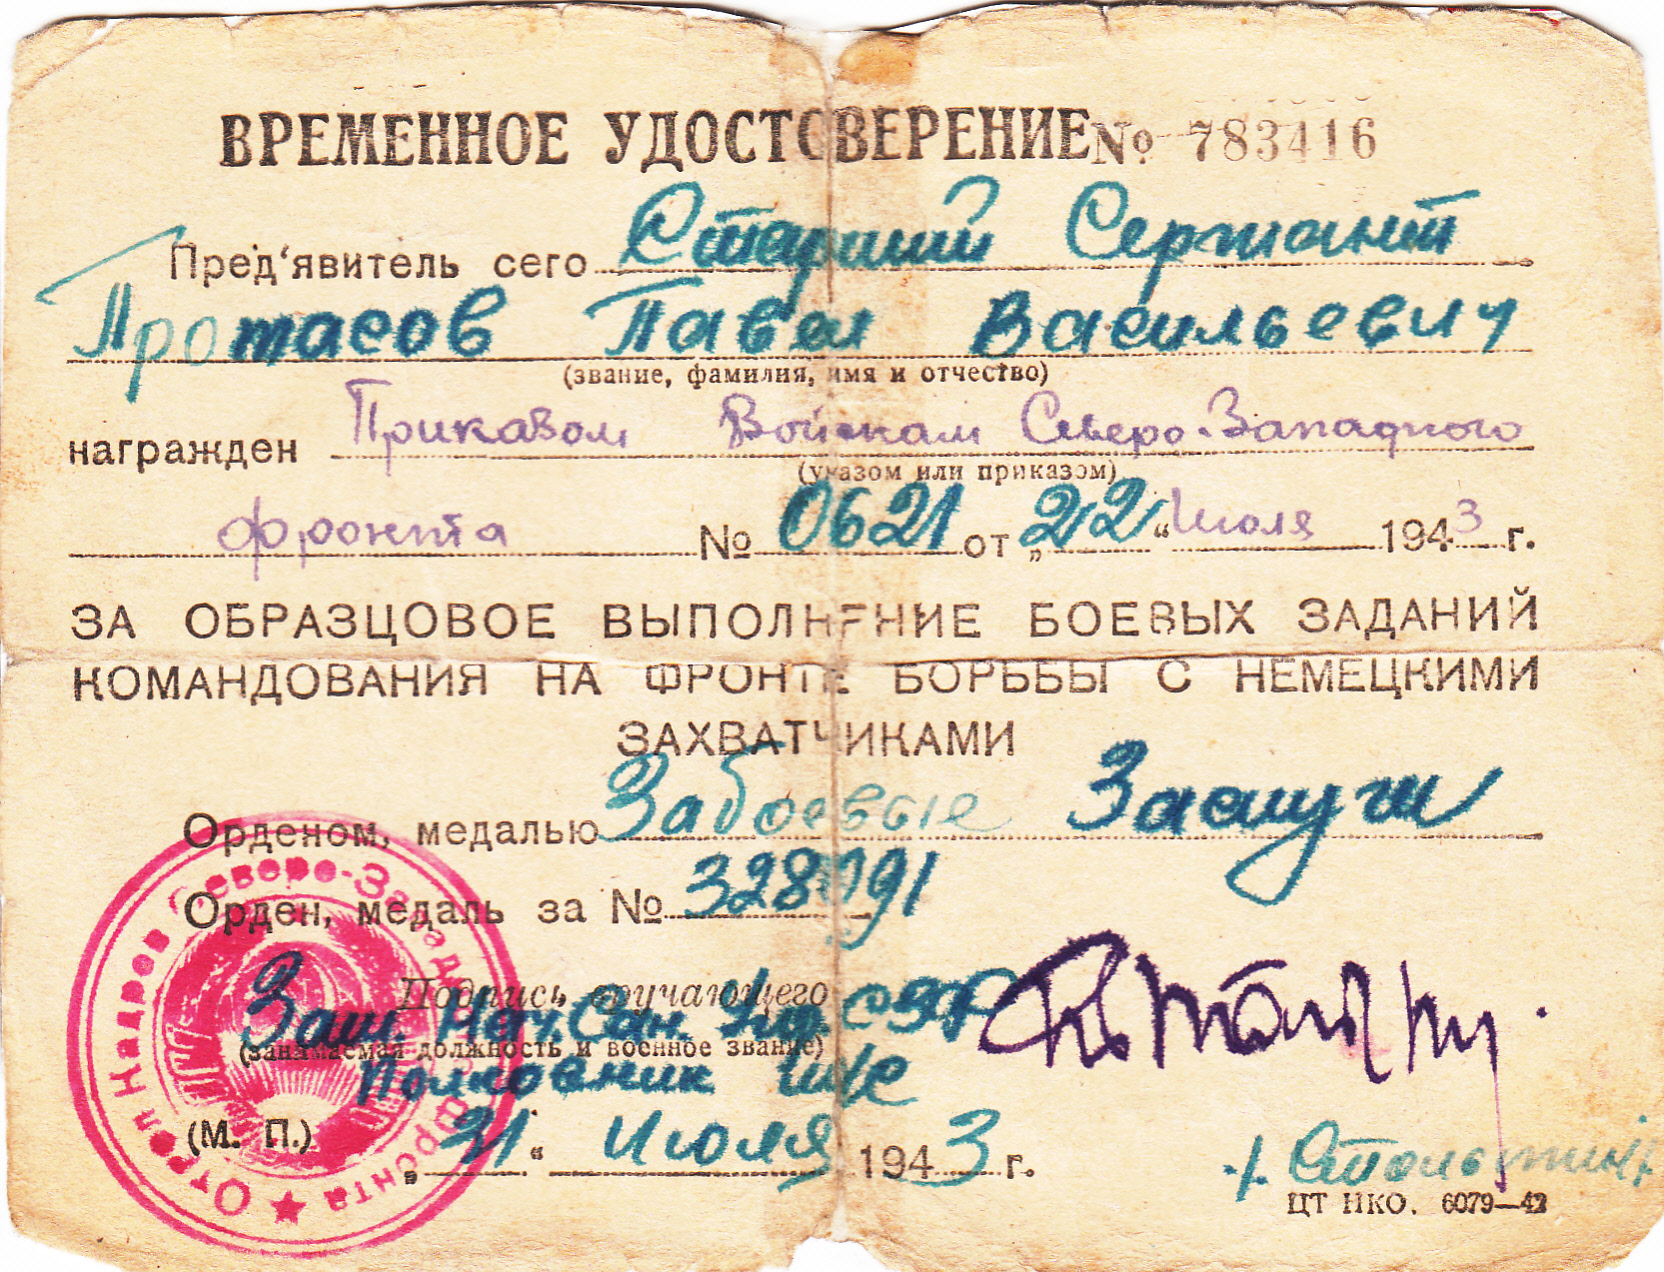 ВРЕМЕННОЕ УДОСТОВЕРЕНИЕ № 783416
Пред'явитель сего Старший Сержант
Протасов Павел Васильевич
(звание, фамилия, имя и отчество)
награжден Приказом Войскам Северо-Западного
(указом или приказом)
фронта № 0621 от „22“ Июля 1943 г.
ЗА ОБРАЗЦОВОЕ ВЫПОЛНЕНИЕ БОЕВЫХ ЗАДАНИЙ
КОМАНДОВАНИЯ НА ФРОНТЕ БОРЬБЫ С НЕМЕЦКИМИ
ЗАХВАТЧИКАМИ
Орденом, медалью За боевые Заслуги
Орден, медаль за №
Подпись вручающего
Зам. Нач. Сан. Упр. СЗФ
(занимаемая должность и военное звание)
Полковник
(М. П.) „31“ Июля 1943 г.
ЦТ НКО. 6079—42
Отдел Кадров Северо-Западного Фронта